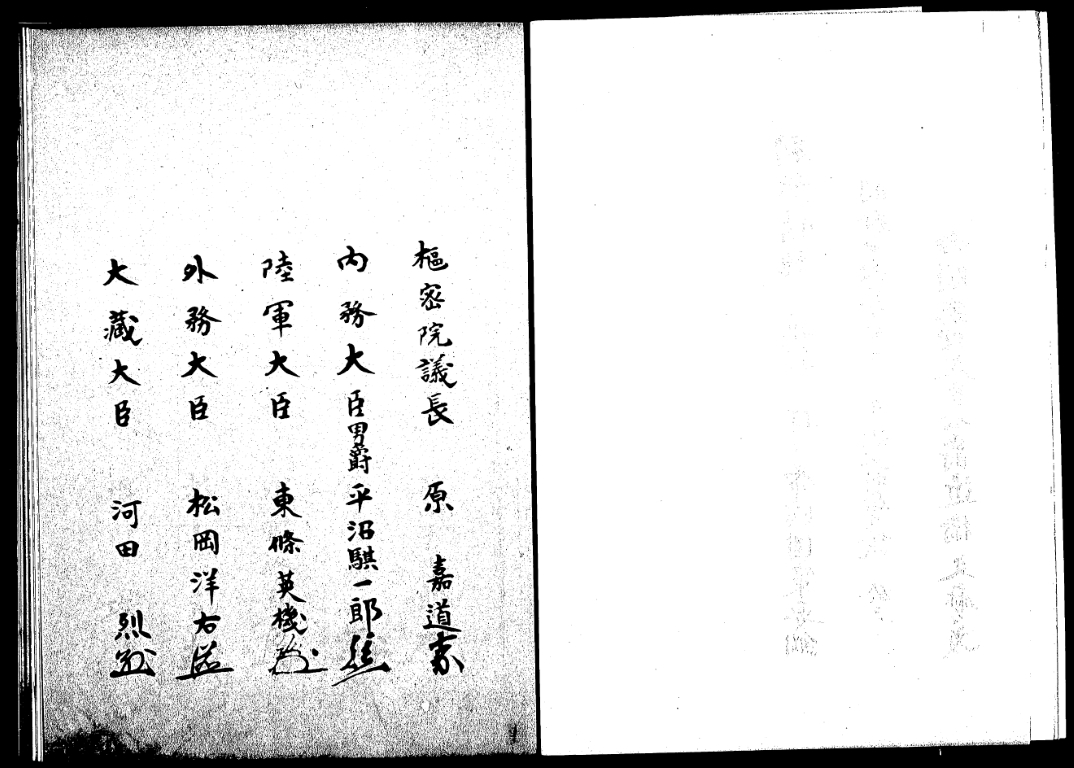 樞密院議長 原 嘉道
内務大臣男爵 平沼騏一郎
陸軍大臣 東條英機
外務大臣 松岡洋右
大藏大臣 河田 烈